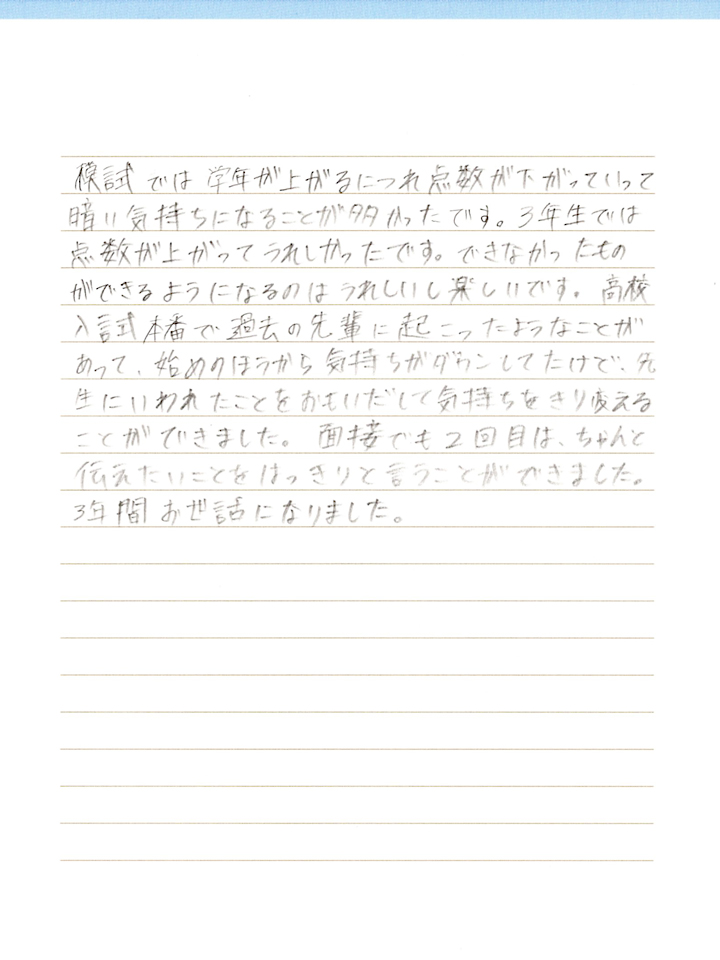 模試では学年が上がるにつれ点数が下がっていって
暗い気持ちになることが多かったです。3年生では
点数が上がってうれしかったです。できなかったもの
ができるようになるのはうれしいし楽しいです。高校
入試本番で過去の先輩に起こったようなことが
あって、始めのほうから気持ちがダウンしてたけど、先
生にいわれたことをおもいだして気持ちをきり変える
ことができました。面接でも2回目は、ちゃんと
伝えたいことをはっきりと言うことができました。
3年間お世話になりました。